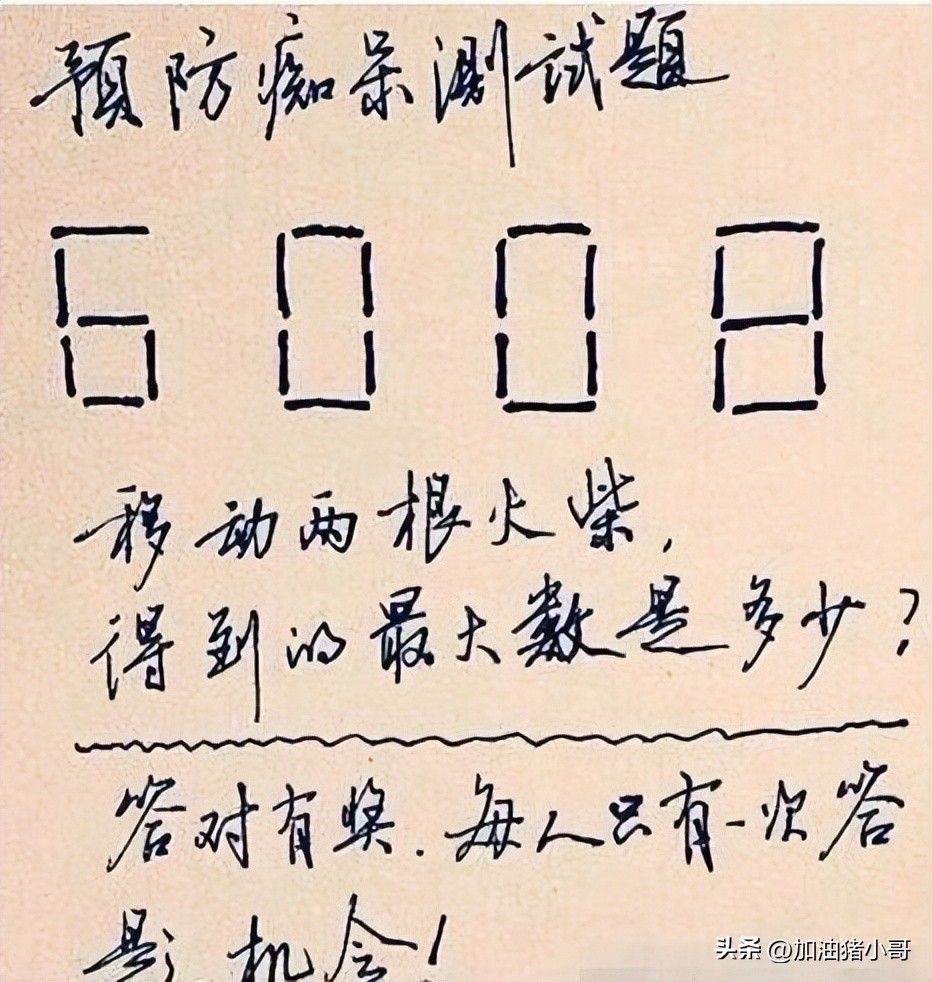 预防痴呆测试题
6008
移动两根火柴,
得到的最大数是多少?
答对有奖.每人只有一次答
题机会!
头条 @加油猪小哥